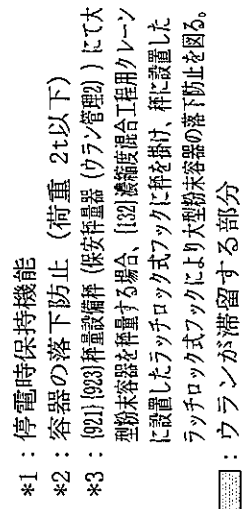 *1：停電時保持機能
*2：容器の落下防止（荷重 2t以下）
*3：{921}{923}秤量設備秤（保安秤量器（ウラン管理2））にて大
型粉末容器を秤量する場合、{132}濃縮度混合工程用クレーン
に設置したラッチロック式フックに秤を掛け、秤に設置した
ラッチロック式フックにより大型粉末容器の落下防止を図る。
：ウランが滞留する部分